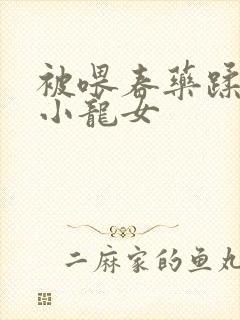 被喂春药蹂
小龍女
二麻家的鱼丸